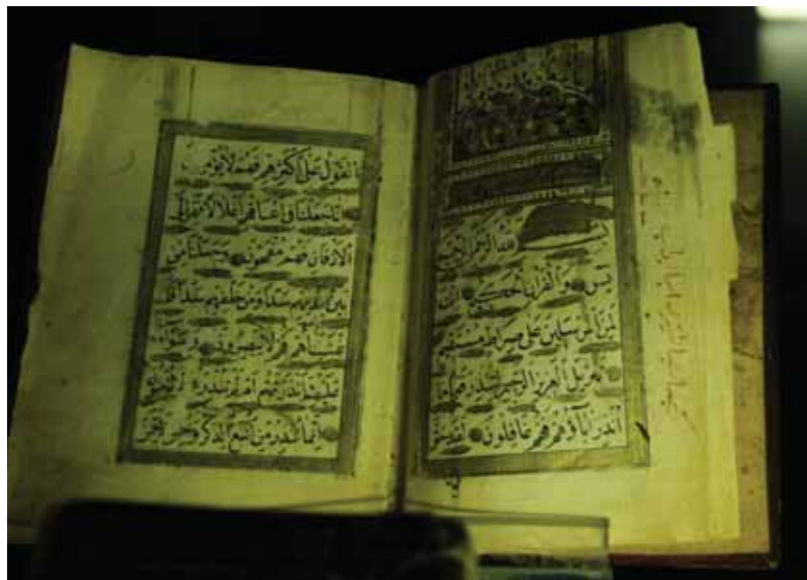 بسم الله الرحمن الرحيم
يس والقران الحكيم انك
لمن المرسلين على صراط مستقيم
تنزيل العزيز الرحيم لتنذر قوما ما
انذر اباؤهم فهم غافلون لقد حق
القول على اكثرهم فهم لا يؤمنون
انا جعلنا في اعناقهم اغلالا فهي الى
الاذقان فهم مقمحون وجعلنا من
بين ايديهم سدا ومن خلفهم سدا فا
غشيناهم فهم لا يبصرون وسواء
عليهم ءانذرتهم ام لم تنذرهم لا يؤمنون
انما تنذر من اتبع الذكر وخشي الرحمن